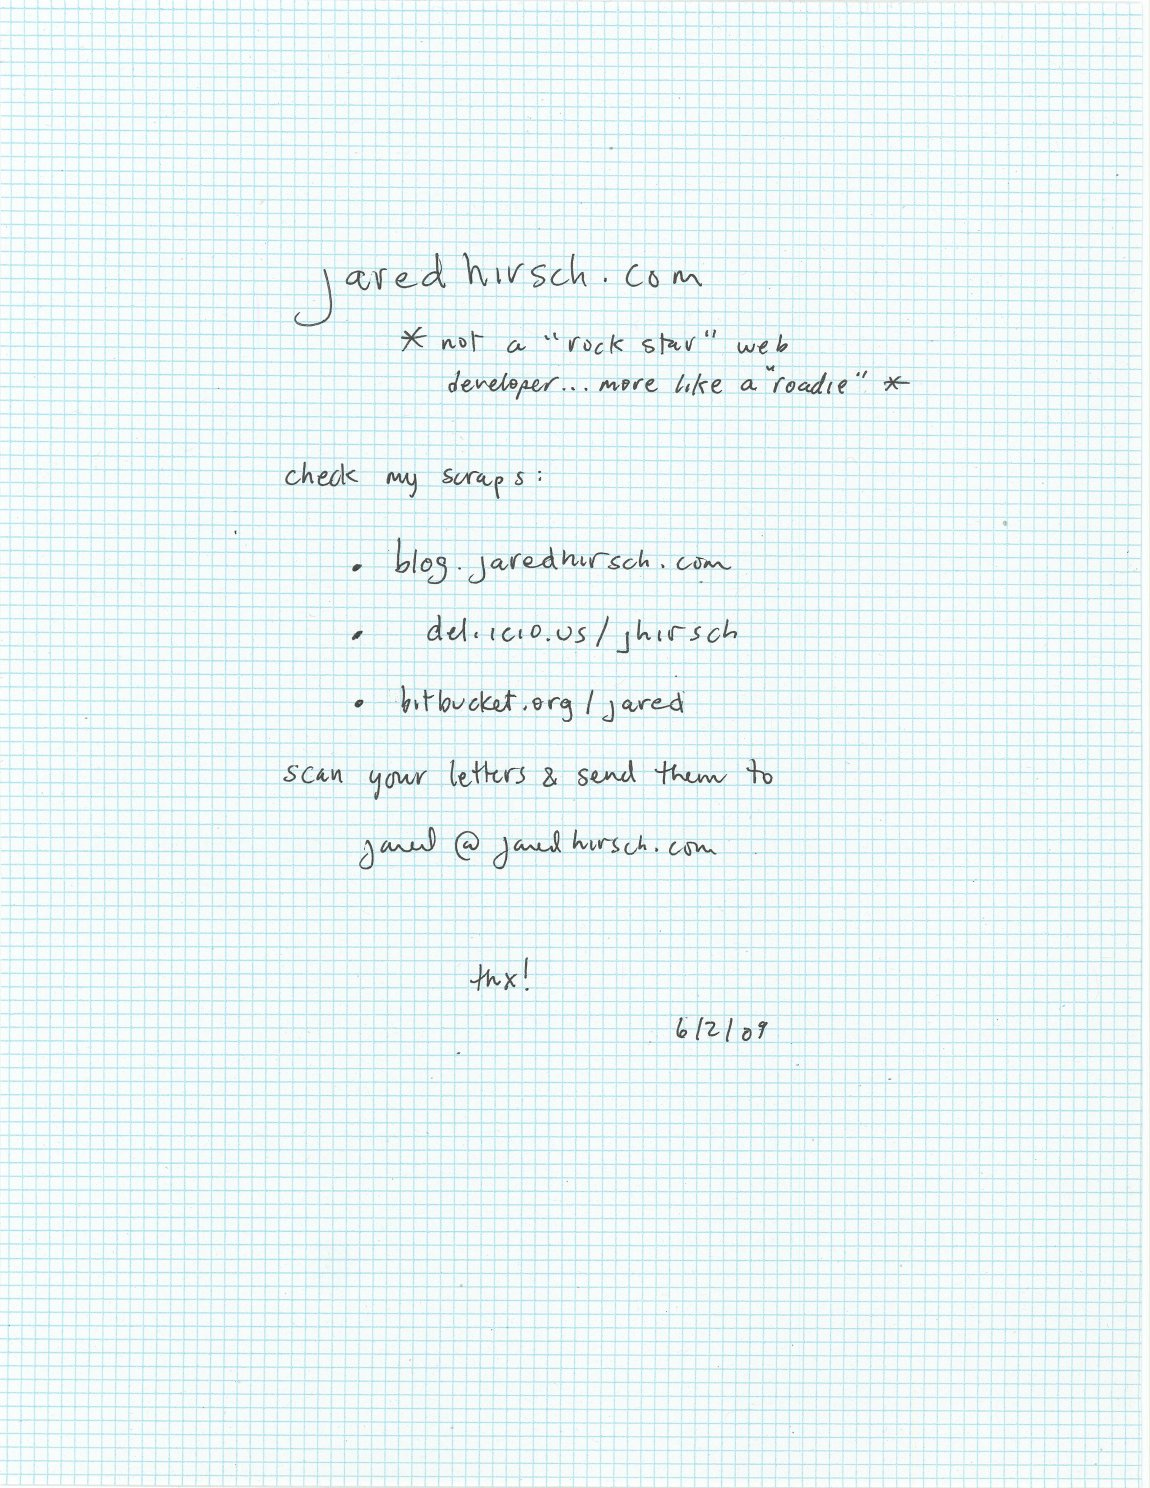 jaredhirsch.com
* not a "rock star" web
developer... more like a "roadie" *
check my scraps:
• blog.jaredhirsch.com
• del.icio.us/jhirsch
• bitbucket.org/jared
scan your letters & send them to
jared @ jaredhirsch.com
thx!
6/2/09